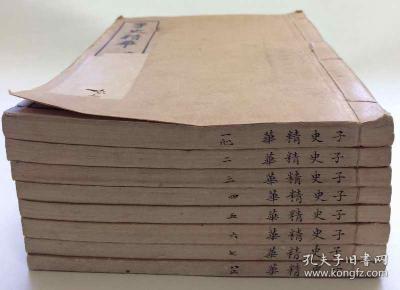 子史精華 一
子史精華 二
子史精華 三
子史精華 四
子史精華 五
子史精華 六
子史精華 七
子史精華
孔夫子旧书网
www.kongfz.com